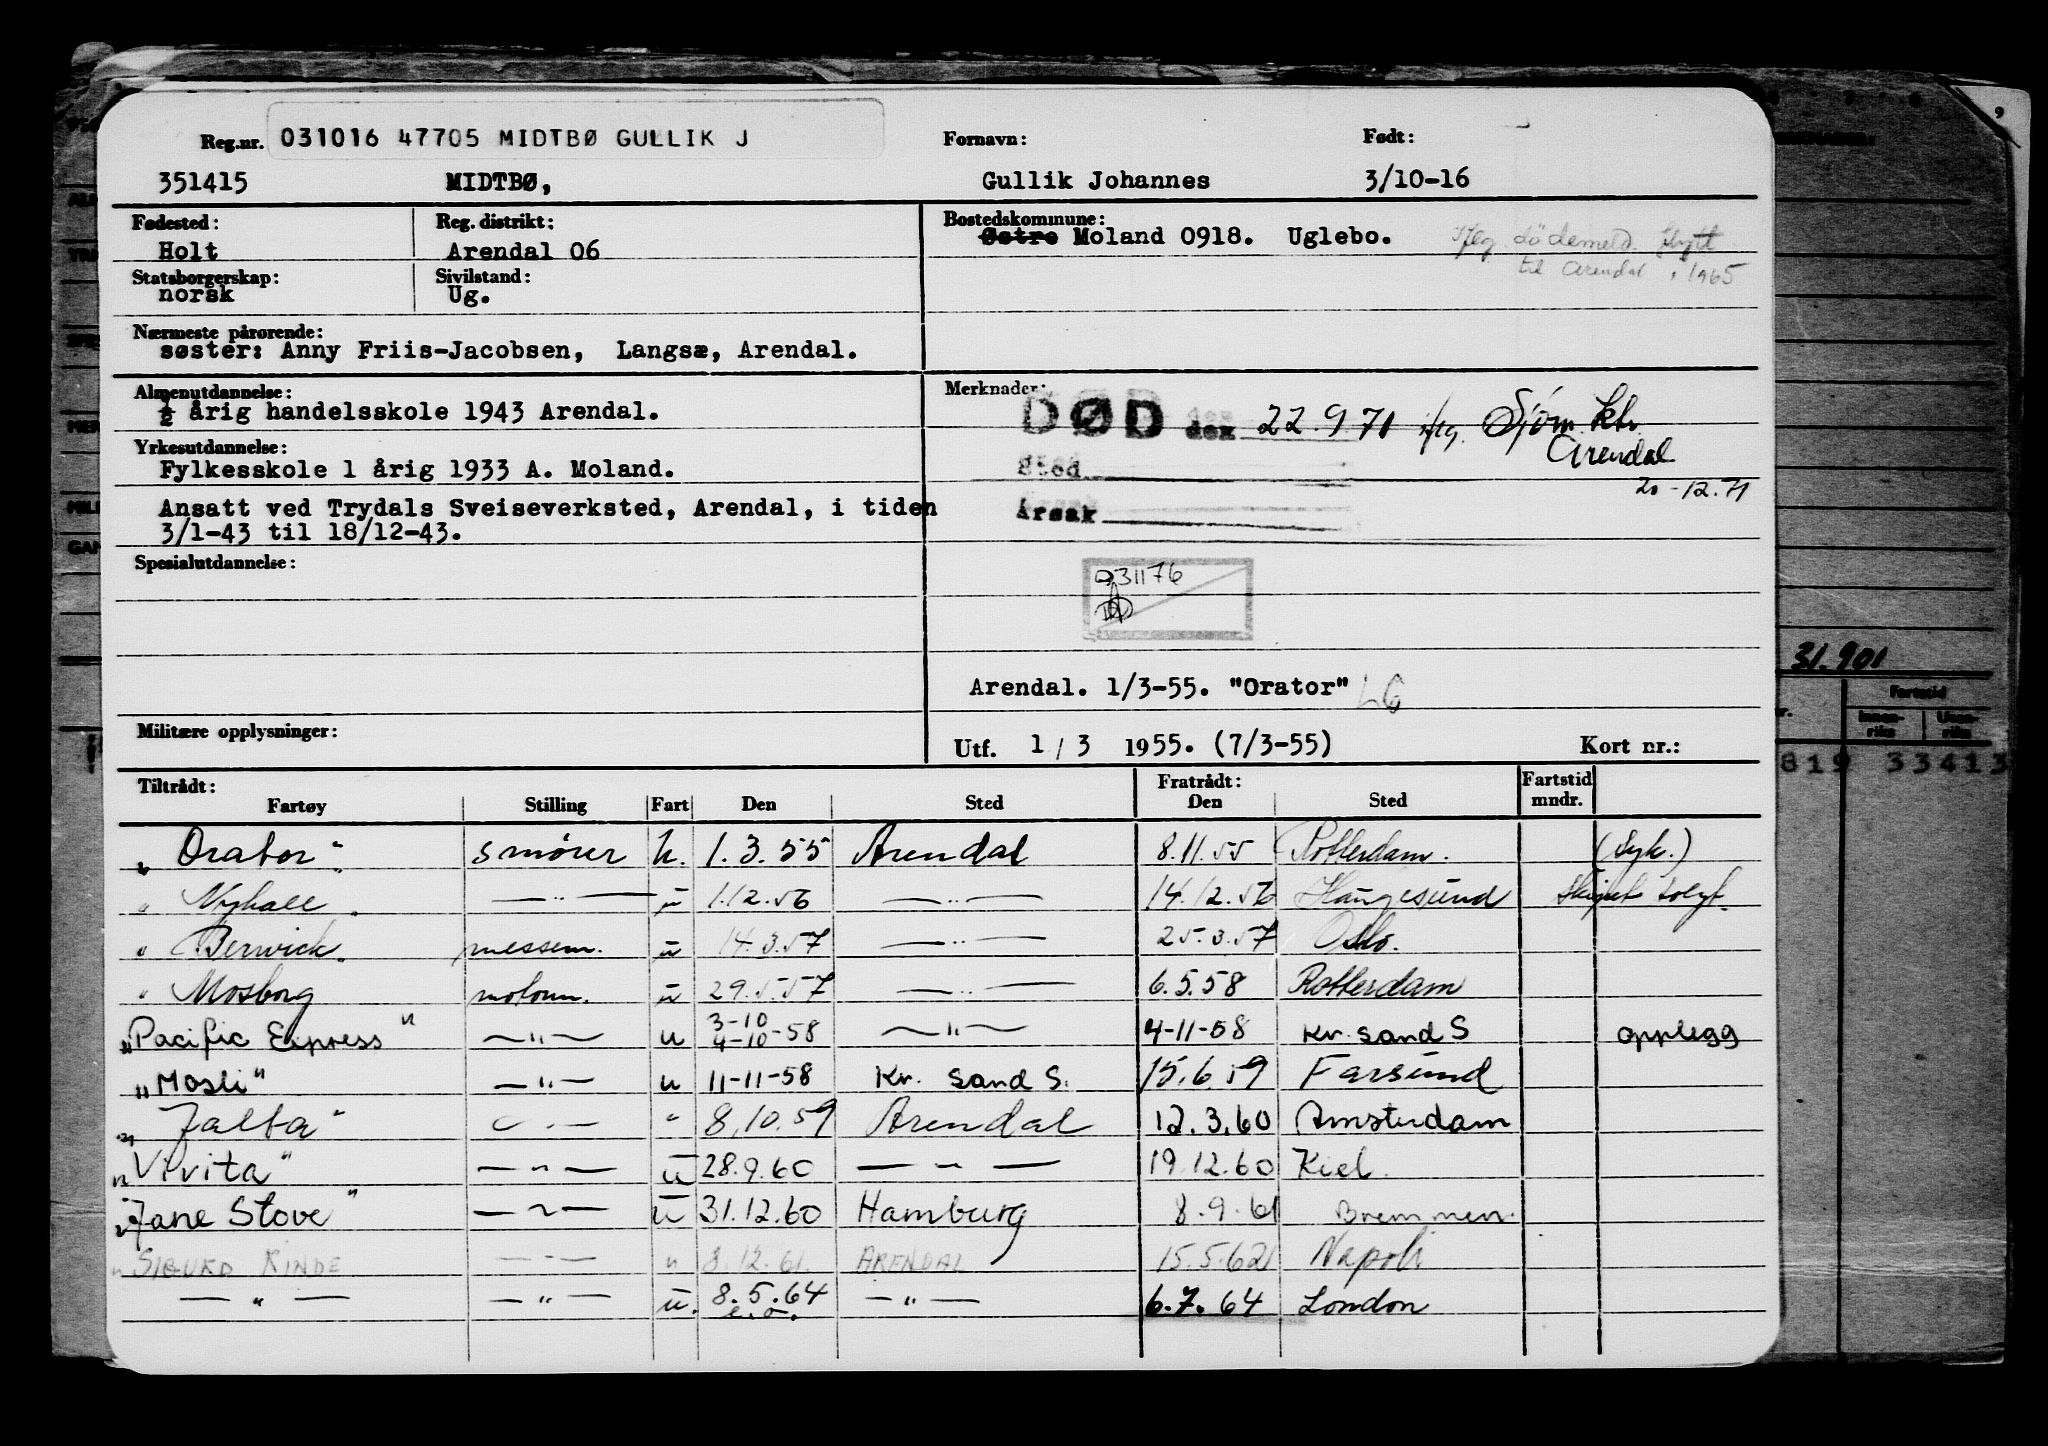 Reg.nr. 031016 47705 MIDTBØ GULLIK J Fornavn: Født:
351415 MIDTBØ, Gullik Johannes 3/10-16
Fødested: Reg. distrikt: Bostedskommune:
Holt Arendal 06 Østre Moland 0918. Uglebo. Iflg. dødsmeld. flytt
til Arendal i 1965
Statsborgerskap: Sivilstand:
norsk Ug.
Nærmeste pårørende:
søster: Anny Friis-Jacobsen, Langsæ, Arendal.
Almenutdannelse: Merknader:
½ årig handelsskole 1943 Arendal. DØD den 22.9.71 iflg. Sjøm. ktr.
Arendal
20-12.71
Yrkesutdannelse:
Fylkesskole 1 årig 1933 A. Moland. Sted
Ansatt ved Trydals Sveiseverksted, Arendal, i tiden
3/1-43 til 18/12-43. Årsak
Spesialutdannelse:
031176
Arendal. 1/3-55. "Orator" LG
Militære opplysninger: Utf. 1/3 1955. (7/3-55) Kort nr.:
Tiltrådt: Fratrådt: Fartstid
Fartøy Stilling Fart Den Sted Den Sted mndr.
"Orator" smører u. 1.3.55 Arendal 8.11.55 Rotterdam. (Syk.)
" Nyhall " — " — u 1.12.56 — " — 14.12.56 Haugesund Skipet solgt.
" Berwick " messem. u 14.3.57 — " — 25.3.57 Oslo.
" Mosborg motorm. u 29.5.57 — " — 6.5.58 Rotterdam
"Pacific Express" — " — u 3-10 4-10-58 — " — 4-11-58 Kr. sand S opplegg
"Mosli" — " — u 11-11-58 Kr. Sand S. 15.6.59 Farsund
"Jalta" — " — " 8.10.59 Arendal 12.3.60 Amsterdam
"Vivita" — " — u 28.9.60 — " — 19.12.60 Kiel.
"Jane Stove" — " — u 31.12.60 Hamburg 8.9.61 Bremmen.
" SIGURD RINDE — " — u 8.12.61. ARENDAL 15.5.62 Napoli
— " — — " — u. 8.5.64 e.o. — " — 6.7.64 London
31.901
Fartstid
Innen-riks Uten-riks
819 33413